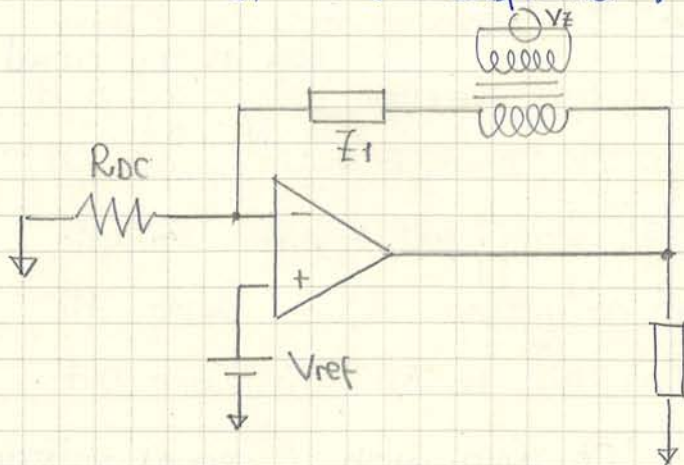 VZ
Z1
RDC
-
+
Vref